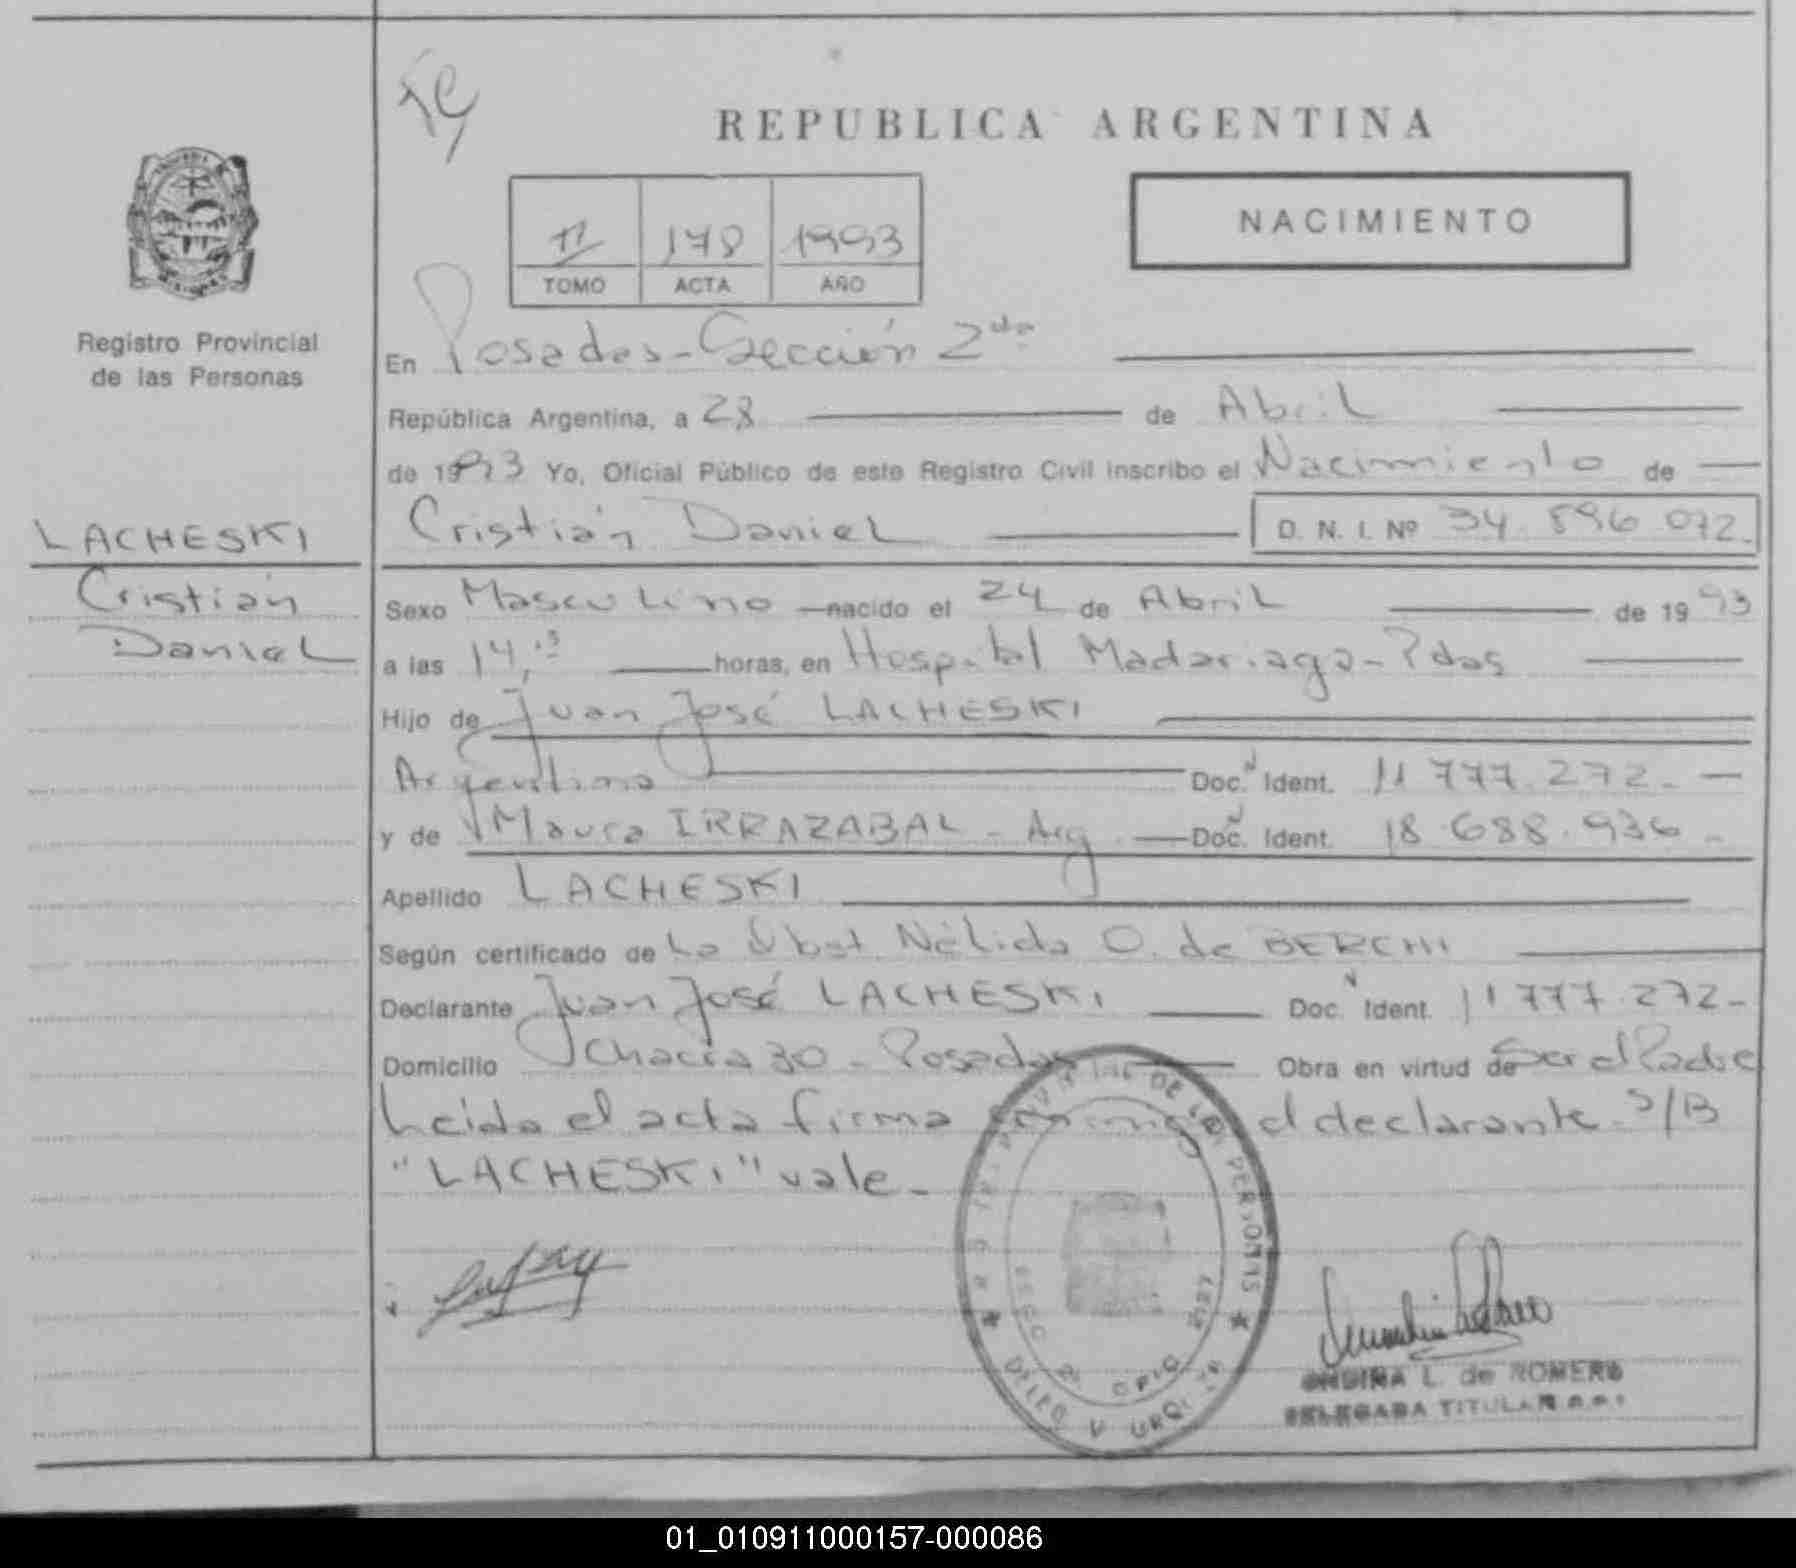 REPUBLICA ARGENTINA
NACIMIENTO
II 178 1993
TOMO ACTA AÑO
Registro Provincial
de las Personas
En Posadas - Sección 2da
República Argentina, a 28 de Abril
de 1993 Yo, Oficial Público de este Registro Civil inscribo el Nacimiento de
LACHESKI
Cristián
Daniel
Cristián Daniel D. N. I. Nº 34.896.072.
Sexo Masculino nacido el 24 de Abril de 1993
a las 14,15 horas, en Hospital Madariaga - Pdas
Hijo de Juan José LACHESKI
Argentino Doc. Ident. 11.777.272.-
y de Maura IRRAZABAL - Arg Doc. Ident. 18.688.936.-
Apellido LACHESKI
Según certificado de La Obst. Nélida O. de BERCHI
Declarante Juan José LACHESKI Doc. Ident. 11.777.272-
Domicilio Chacra 30 - Posadas Obra en virtud de Ser el Padre
Leída el acta firma conmigo el declarante. S/B
"LACHESKI" vale-
ONDINA L. de ROMERO
DELEGADA TITULAR
01_010911000157-000086